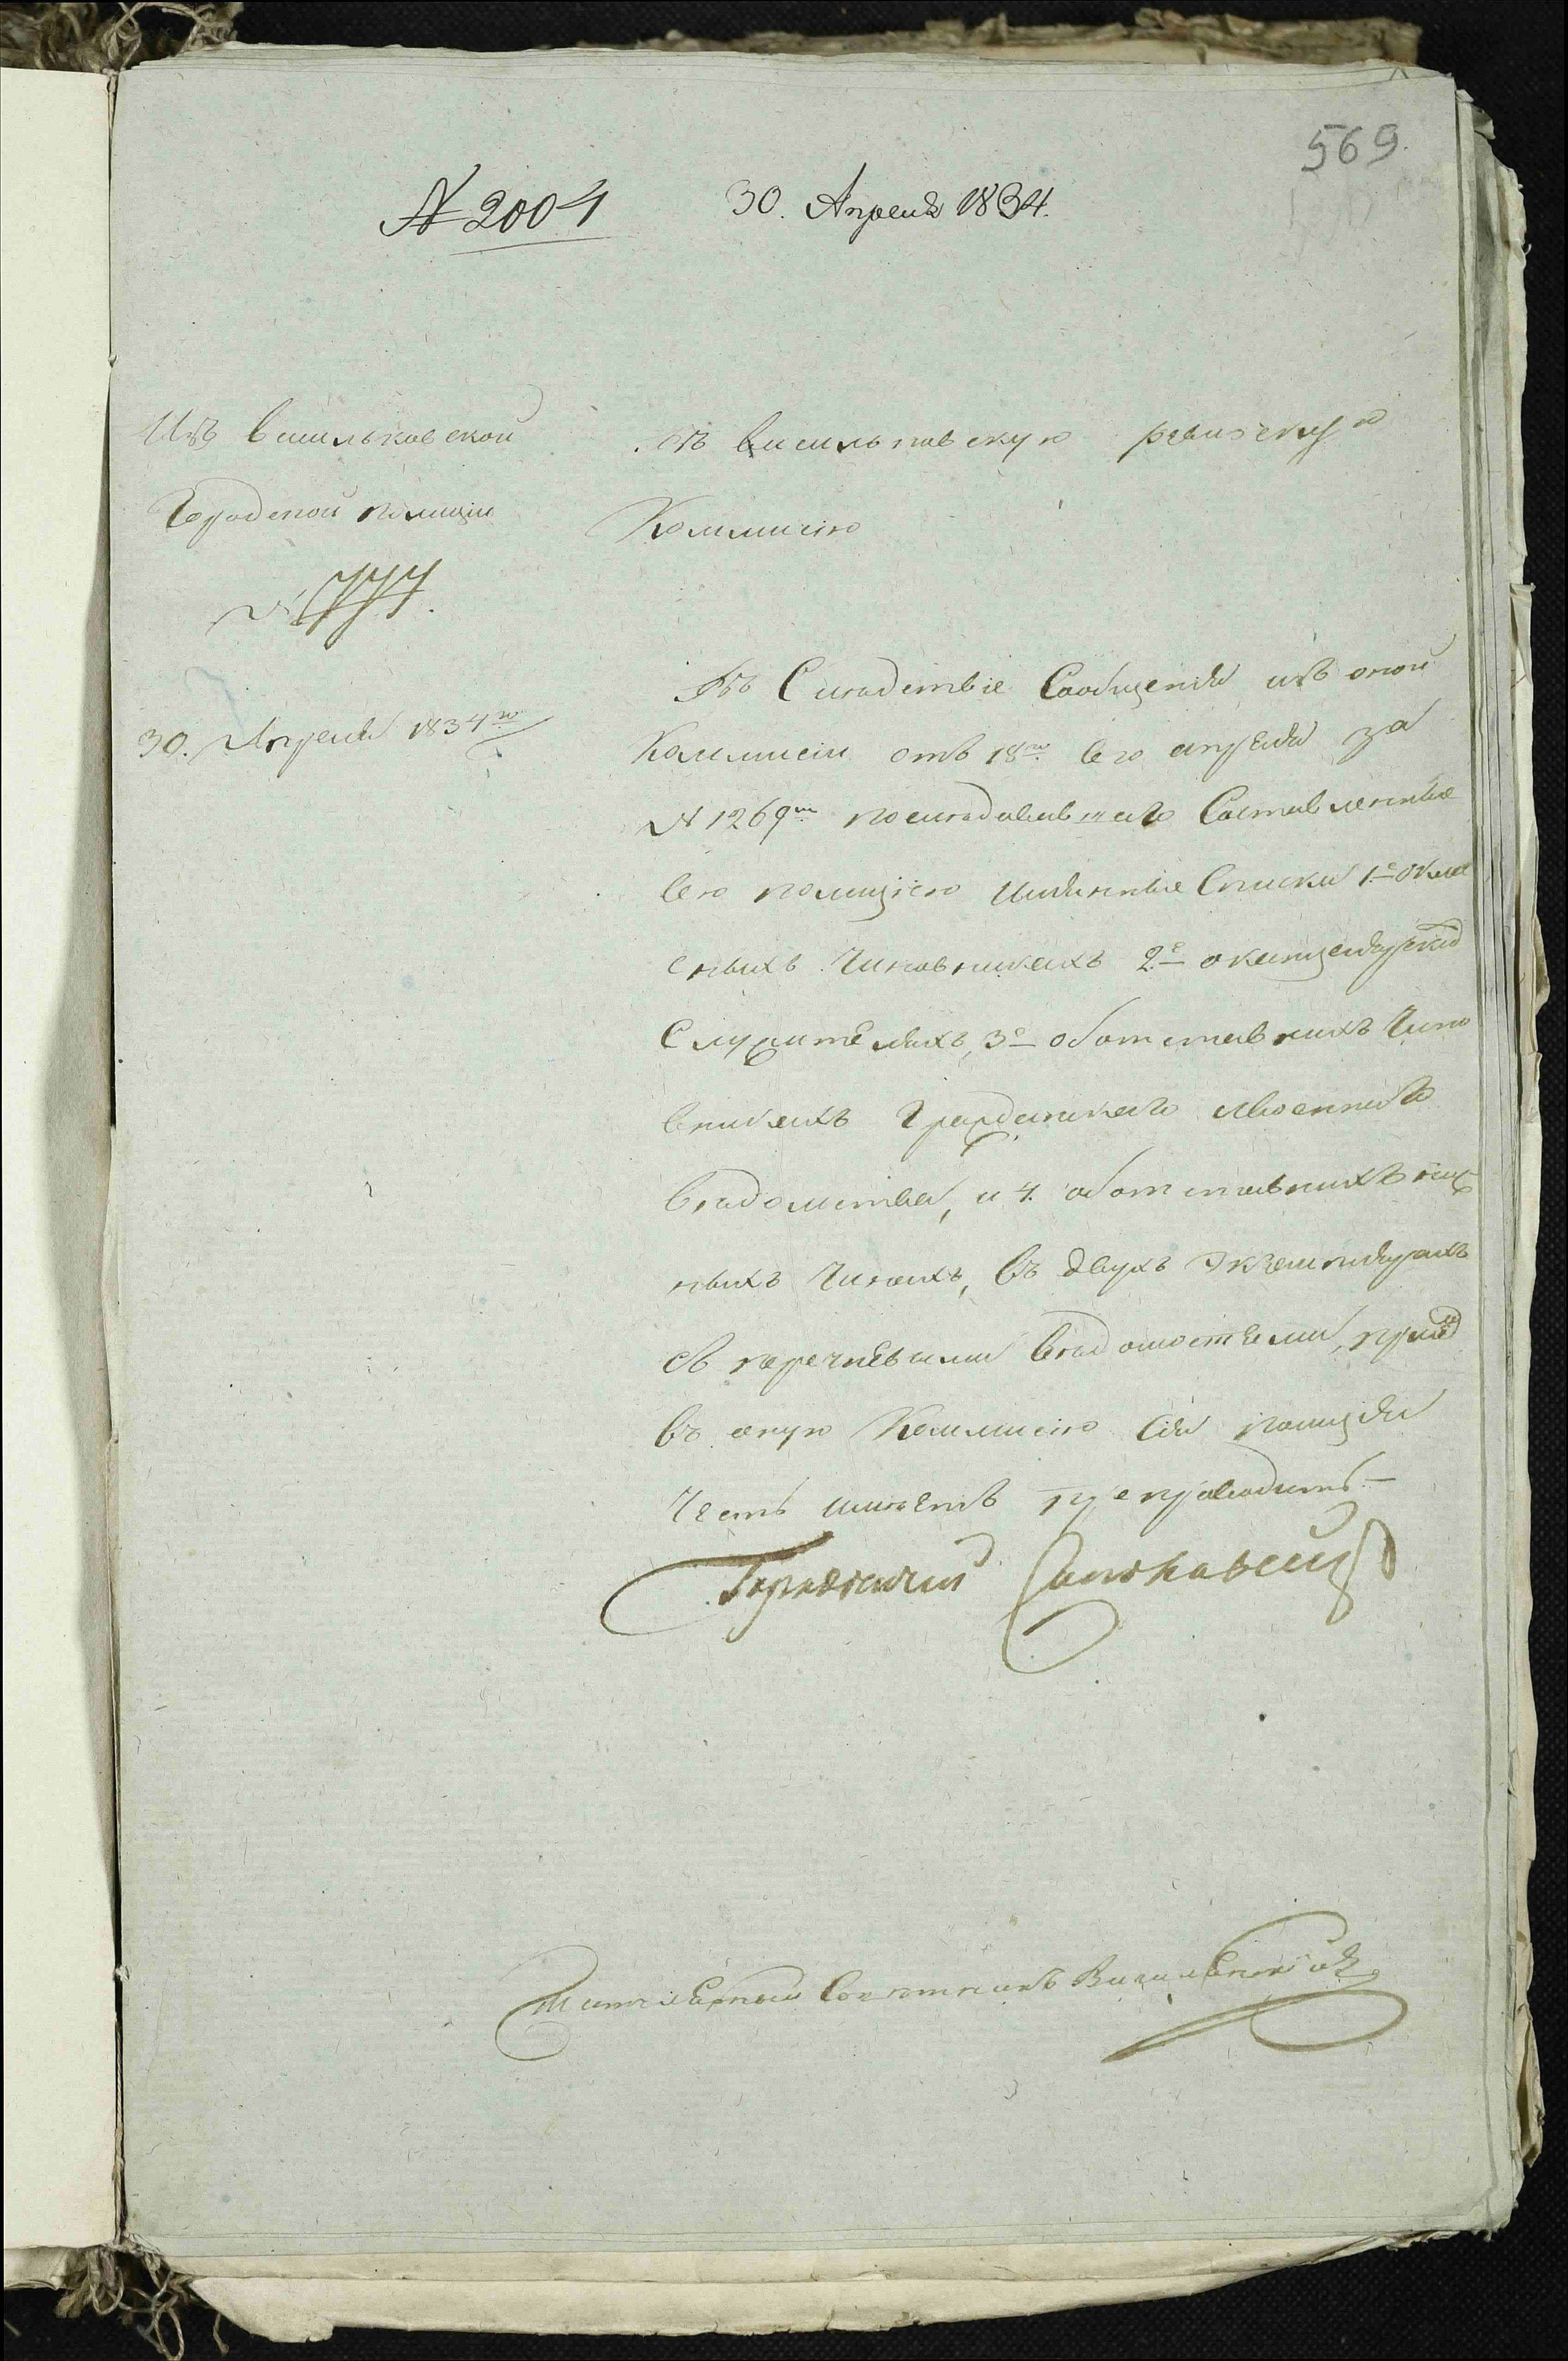 569.
N 2004 30. Апреля 1834.
Изъ васильковской
Городской полиціи
N. 777.
30. Апреля 1834го
Въ васильковскую ревизскую
Коммисію
Въ Следствіе Сообщенія изъ оной
Коммисіи отъ 18го сего апреля за
N 1269м последовавшаго Составленные
сею полициею имянные Списки 1е о клас
сныхъ Чиновникахъ 2е о канцелярскихъ
Служителяхъ, 3е об отставныхъ Чино
вникахъ Гражданскаго и военнаго
ведомства, и 4. об отставныхъ ниж
ныхъ Чинахъ, въ двухъ Экземплярахъ
съ перечневыми ведомостями, при сем
въ оную Коммисію Сія полиція
Честь имеетъ препроводить —
Городничий
Титулярный Советникъ